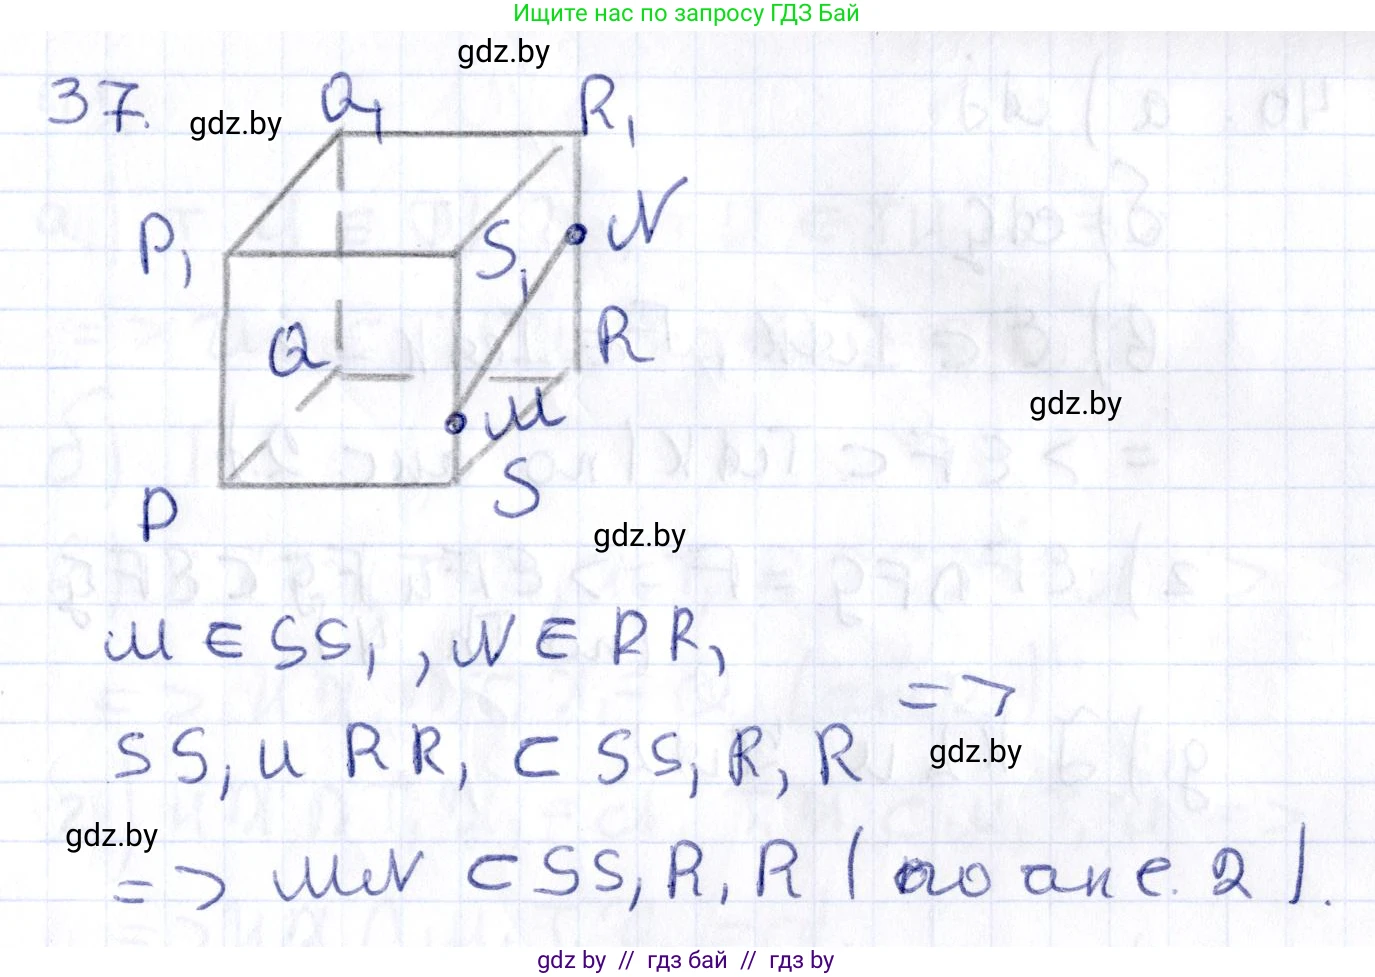 Ищите нас по запросу ГДЗ Бай
gdz.by
37.
gdz.by
Q₁
R₁
P₁
S₁
N
Q
R
gdz.by
M
S
P
gdz.by
M ∈ SS₁, N ∈ RR₁
=>
SS₁ и RR₁ ⊂ SS₁R₁R
gdz.by
gdz.by
=> MN ⊂ SS₁R₁R (по акс. 2).
gdz by // гдз бай // гдз by